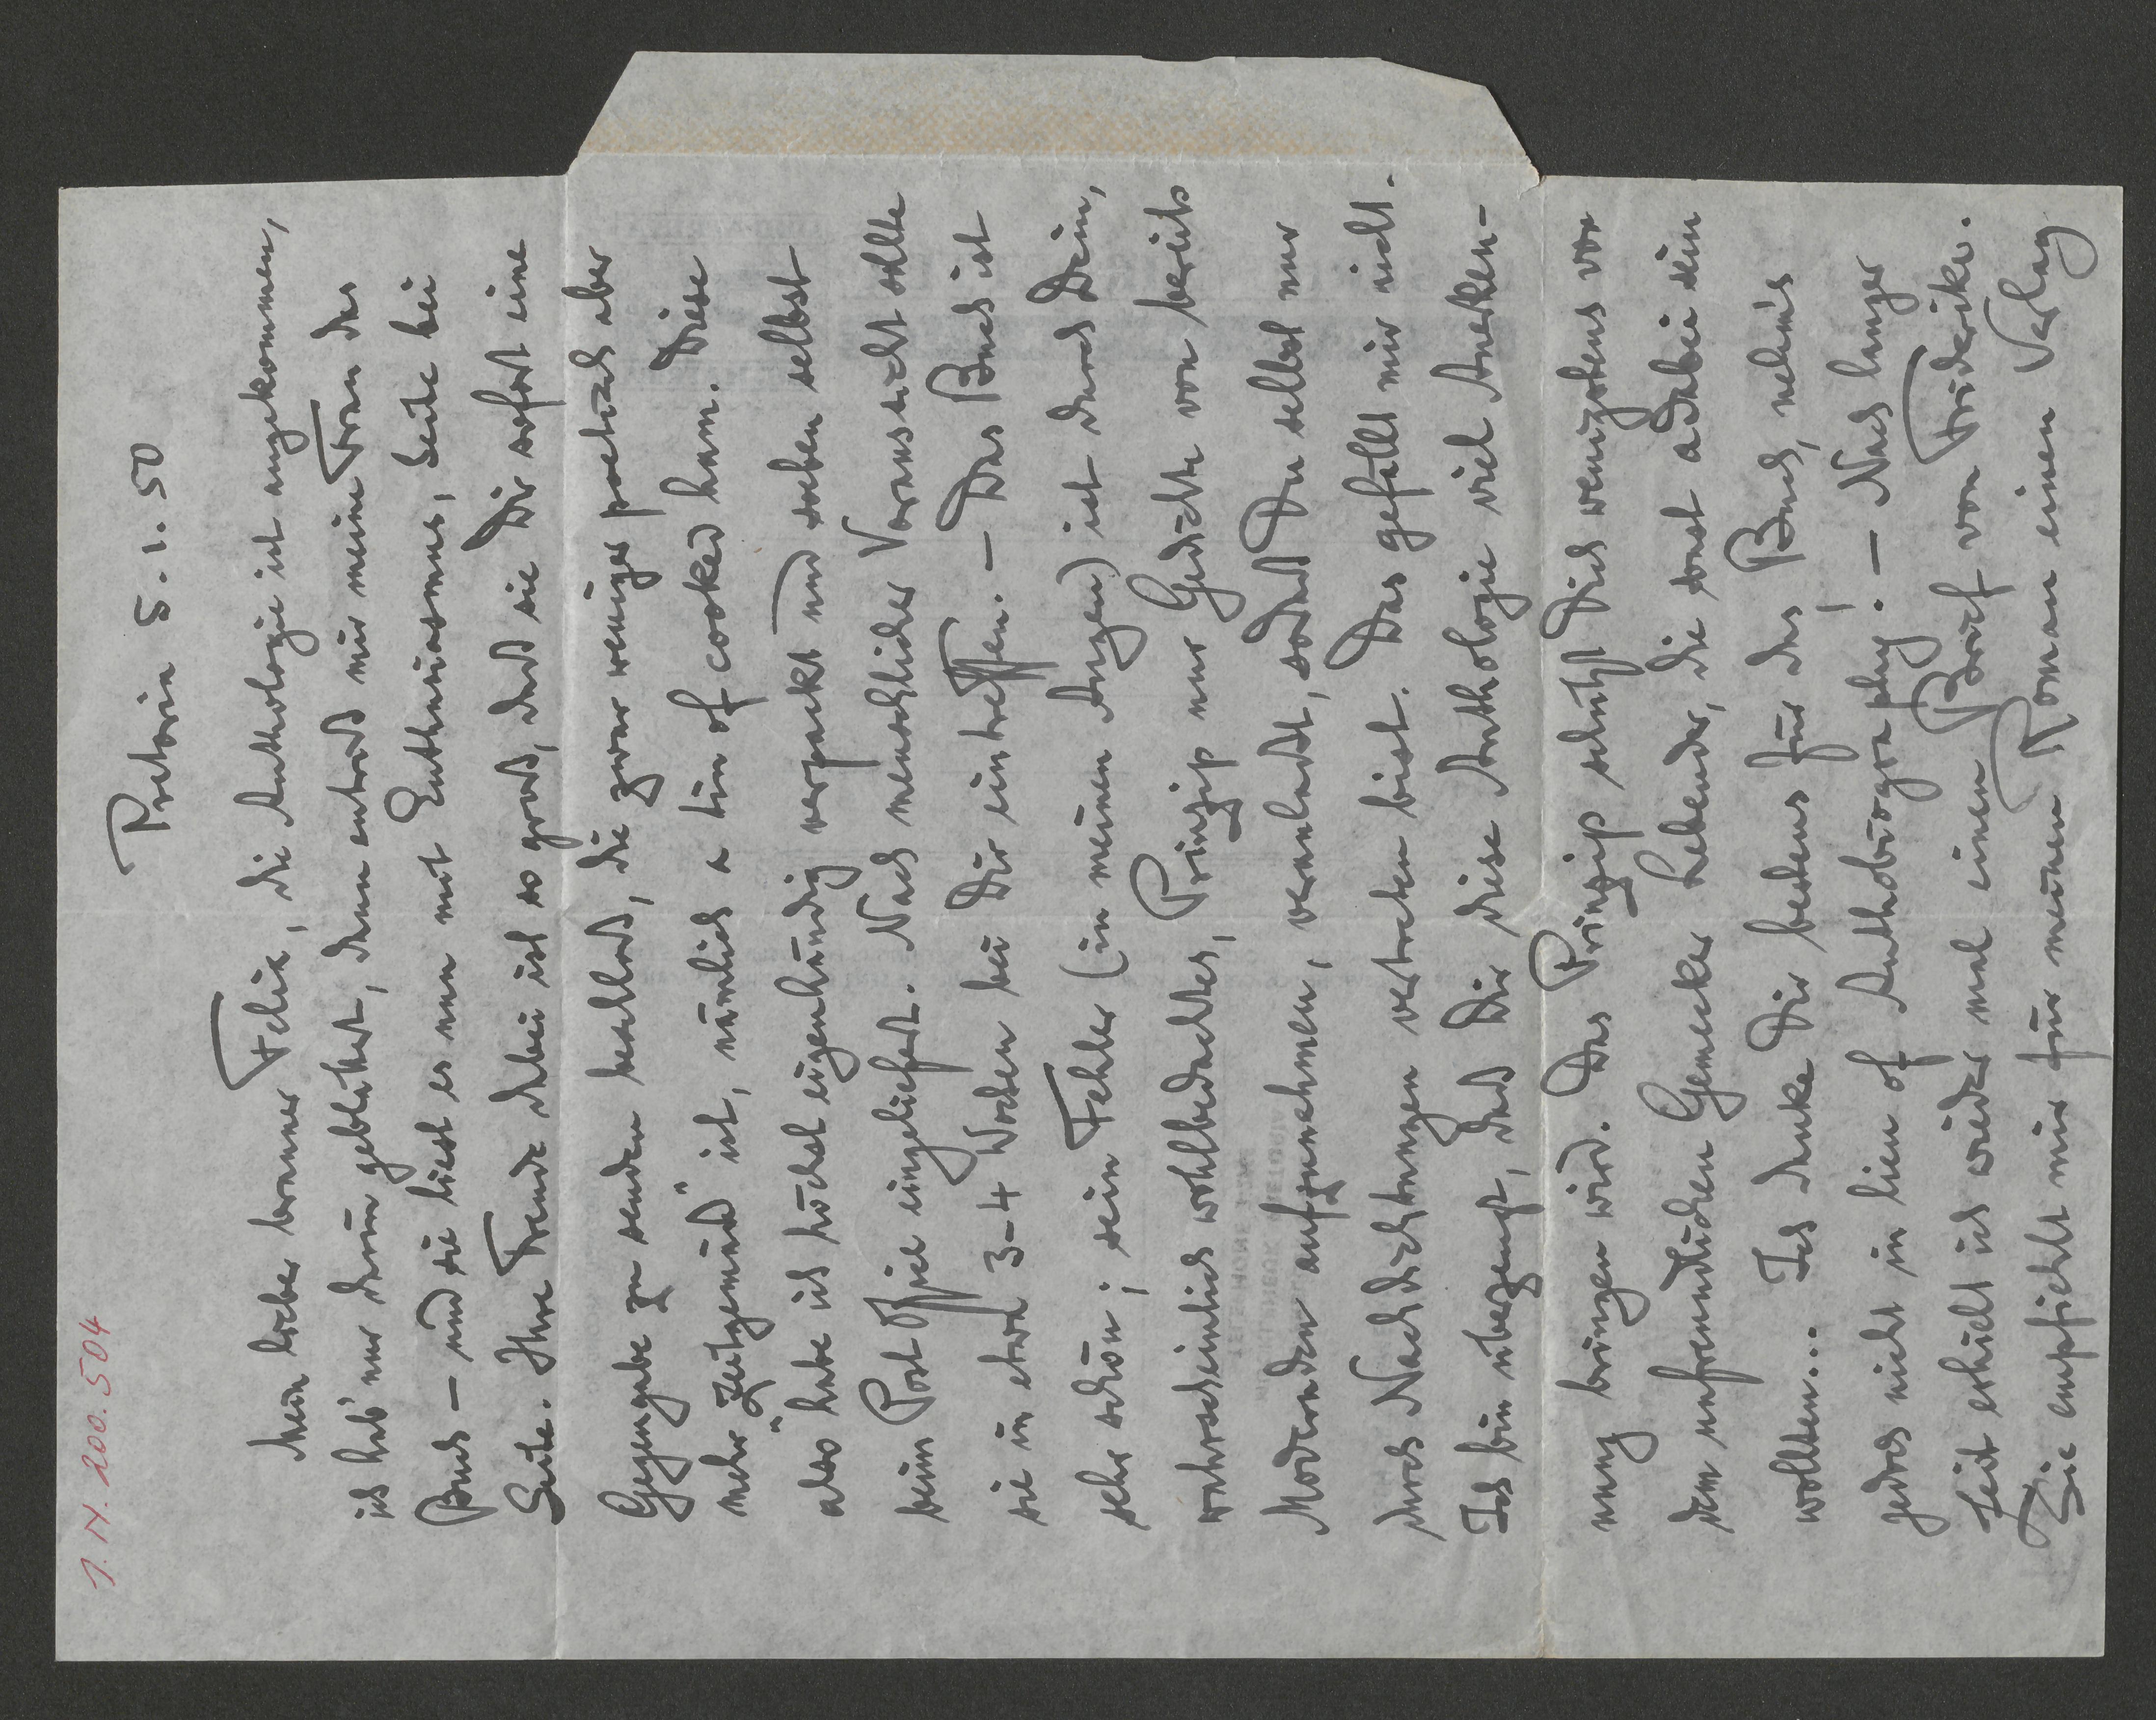 I. N. 200.504
Pretoria 5.1.50
Mein lieber braver Felix, die Anthologie ist angekommen,
ich hab' nur drin geblättert, dann entriss mir meine Frau das
Buch – und sie liest es nun mit Enthusiasmus, Seite bei
Seite. Ihre Freude dabei ist so gross, dass sie Dir sofort eine
Gegengabe zu senden beschloss, die zwar weniger poetisch aber
mehr "zeitgemäss" ist, nämlich a tin of cooked ham. Diese
also habe ich höchst eigenhändig verpackt und soeben selbst
beim Post Offjie eingeliefert. Nach menschlicher Voraussicht sollte
sie in etwa 3-4 Wochen bei Dir eintreffen. – Das Buch ist
sehr schön; sein Fehler (in meinen Augen) ist durch Dein,
wahrscheinlich wohlbedachtes, Prinzip nur Gedichte von bereits
Modernden aufzunehmen, veranlasst, sodass Du selbst nur
durch Nachdichtungen vertreten bist. Das gefällt mir nicht.
Ich bin überzeugt, dass Dir diese Anthologie viel Anerken-
nung bringen wird. Das Prinzip schützt Dich wenigstens vor
dem unfreundlichen Gemecker Lebender, die sonst adabei sein
wollten... Ich danke Dir bestens für das Buch, nehm's
jedoch nicht in lieu of Authobiography! – Nach langer
Zeit erhielt ich wieder mal einen Brief von Friderike.
Sie empfiehlt mir für meinen Roman einen Verlag